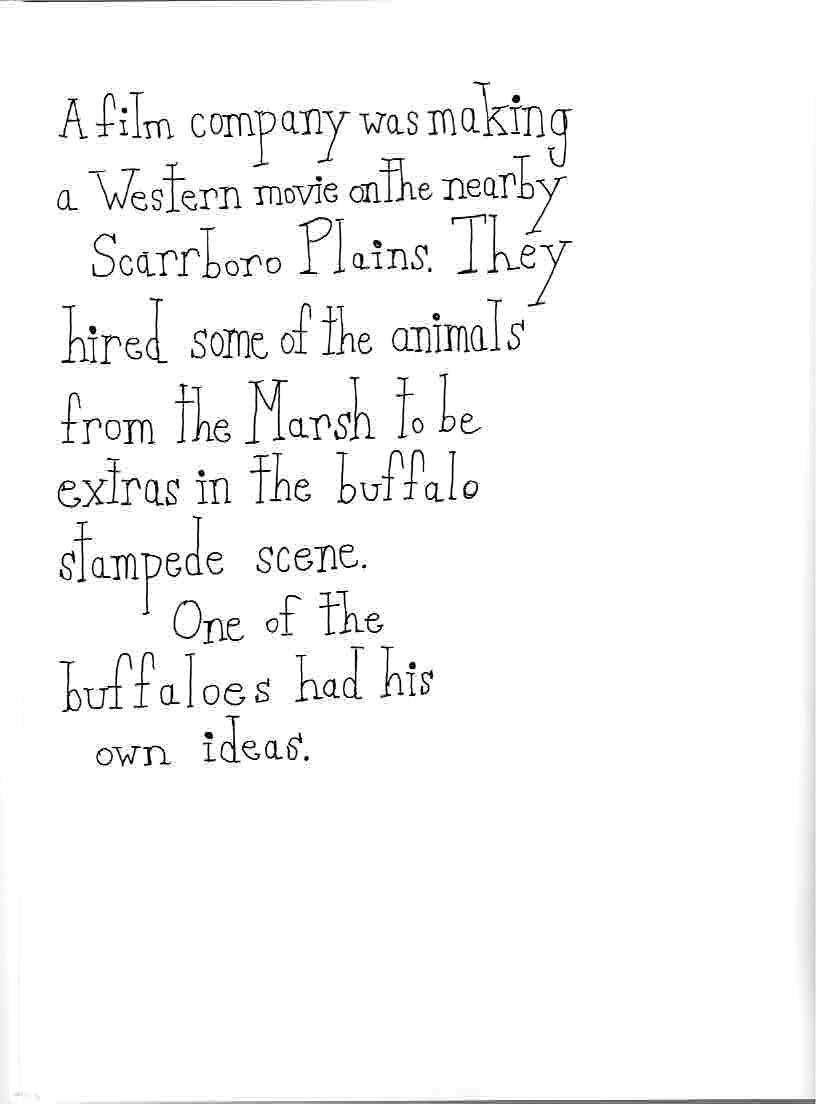 A film company was making
a Western movie on the nearby
Scarrboro Plains. They
hired some of the animals
from the Marsh to be
extras in the buffalo
stampede scene.
One of the
buffaloes had his
own ideas.